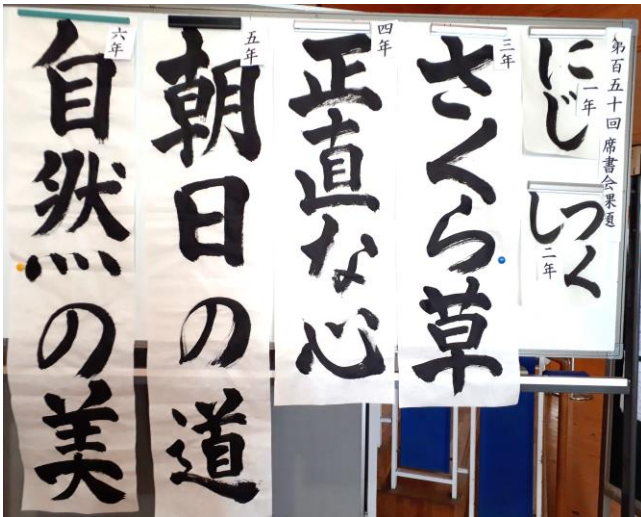 第百五十回 席書会課題
一年
にじ
二年
つく
し
三年
さくら草
四年
正直な心
五年
朝日の道
六年
自然の美